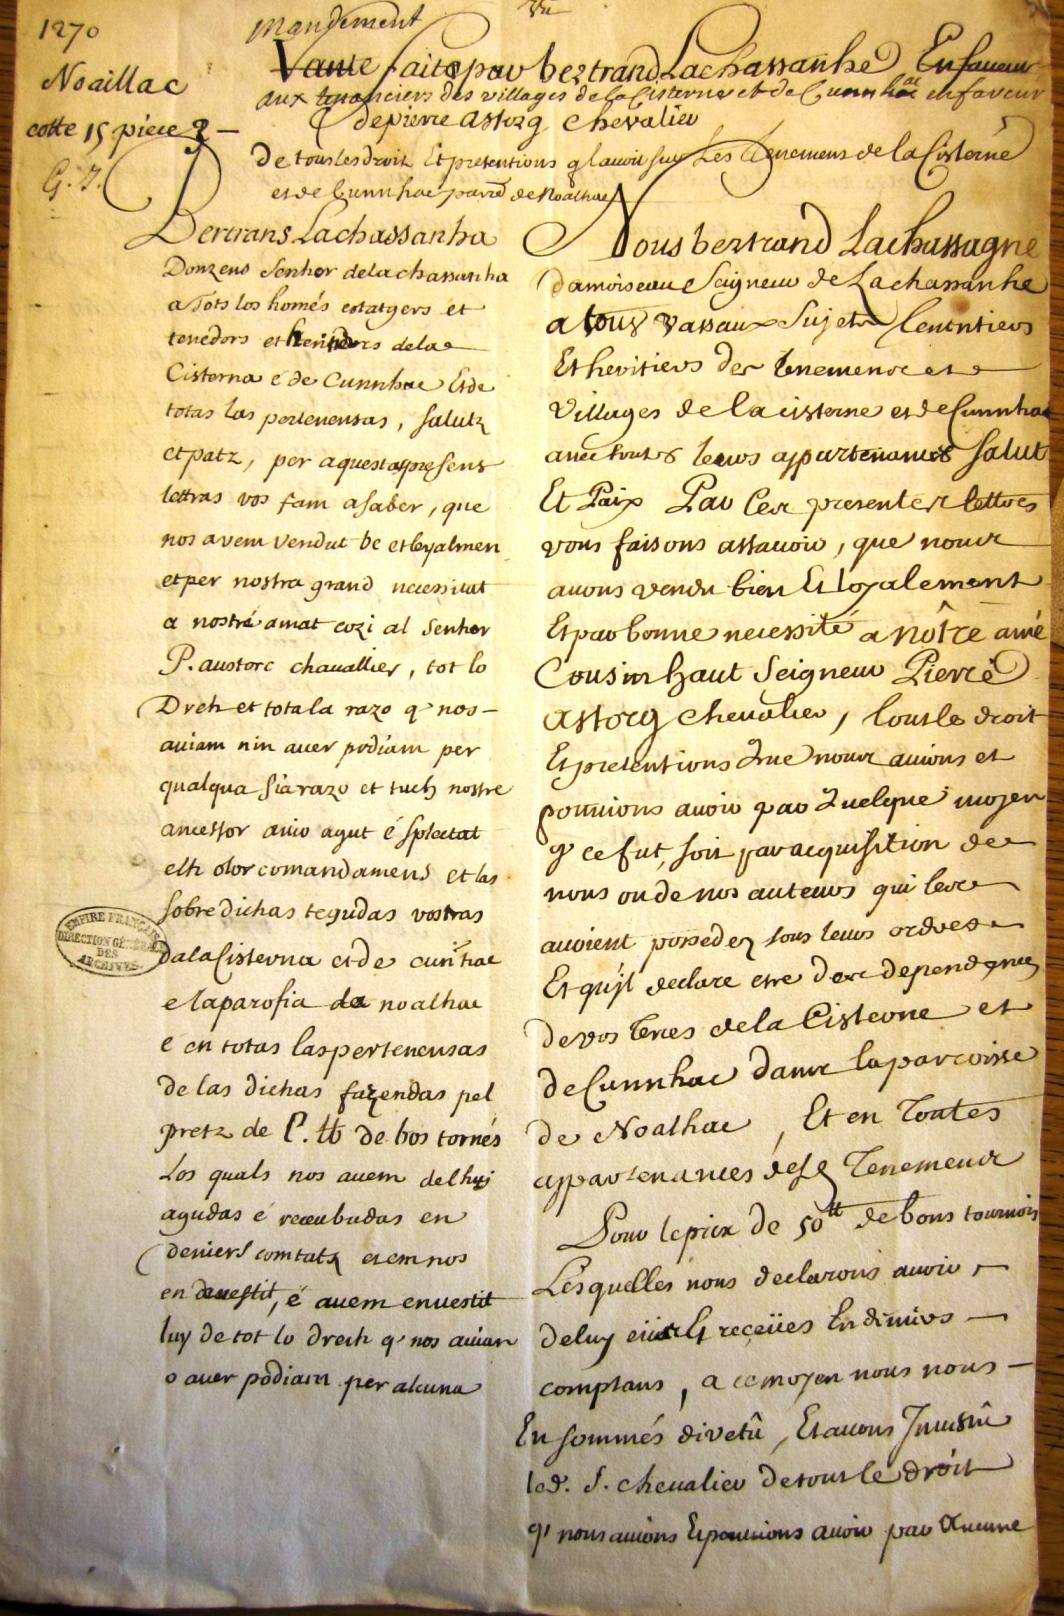 1270
Noaillac
cotte 15 piece 3
G. 7.
Mandement
Vu
Vante faite par bertrand Lachassanhe En faveur
aux tenanciers des villages de la Cisterne et de Cunnhac en faveur
de pierre astorg chevalier
de tous les droits Et pretentions q l avoit sur Les tenemens de la Cisterne
et de Cunnhac parr^e de Noalhac
Bertrans Lachassanha
Donzeus Senhor de la chassanha
a Tots los homés estatgers et
tenedors et heritiers de la
Cisterna é de Cunnhac Et de
totas las pertenensas, salutz
et patz, per aquestas presens
lettras vos fam a saber, que
nos avem vendut be et leyalmen
et per nostra grand necessitat
a nostré amat cozi al Senher
P. austorc chavallier, tot lo
Dreh et tota la razo q' nos
aviam nin aver podiam per
qualqua sia razo et tuch nostre
ancessor avio agut é splectat
elh o lor comandamens et las
sobre dichas tegudas vostras
da la Cisterna et de cunhac
e la parofia de noalhac
é en totas las pertenensas
de las dichas fazendas pel
pretz de L. tt de bos tornés
Los quals nos avem de lhuj
agudas é receubudas en
deniers comtats et em nos
en devestit, é avem envestit
luy de tot lo drech q' nos avian
o aver podiam per alcuna
EMPIRE FRANÇAIS
DIRECTION GÉNÉRALE
DES
ARCHIVES
Nous bertrand Lachassagne
damoiseau Seigneur de Lachassanhe
a tous vassaux Sujets tenentiers
Et heritiers des tenemens et
Villages de la cisterne et de Cunnhac
avec toutes leurs appartenances Salut
Et Paix Par Ces presentes lettres
vous faisons assavoir, que nous
avons vendu bien Et loyalement
Et par bonne necessité a nôtre amé
Cousin haut Seigneur Pierre
astorg chevalier, tout le droit
Et pretentions Que nous avions et
pouvions avoir par Quelque moyen
q' ce fut, soit par acquisition de
nous ou de nos auteurs qui les
avoient possedez sous leurs ordres
Et qu'jl declare etre des dependances
de vos Terres de la Cisterne et
de Cunnhac dans la parroisse
de Noalhac, Et en Toutes
appartenances desd Tenemens
Pour le prix de 50tt de bons tournois
Lesquelles nous declarons avoir
de luy eües Et receües En deniers
comptans, a ce moyen nous nous
En sommés divetû, Et avons Jnvestû
led. S. chevalier de tout le droit
q' nous avions Et pouvions avoir par Aucune